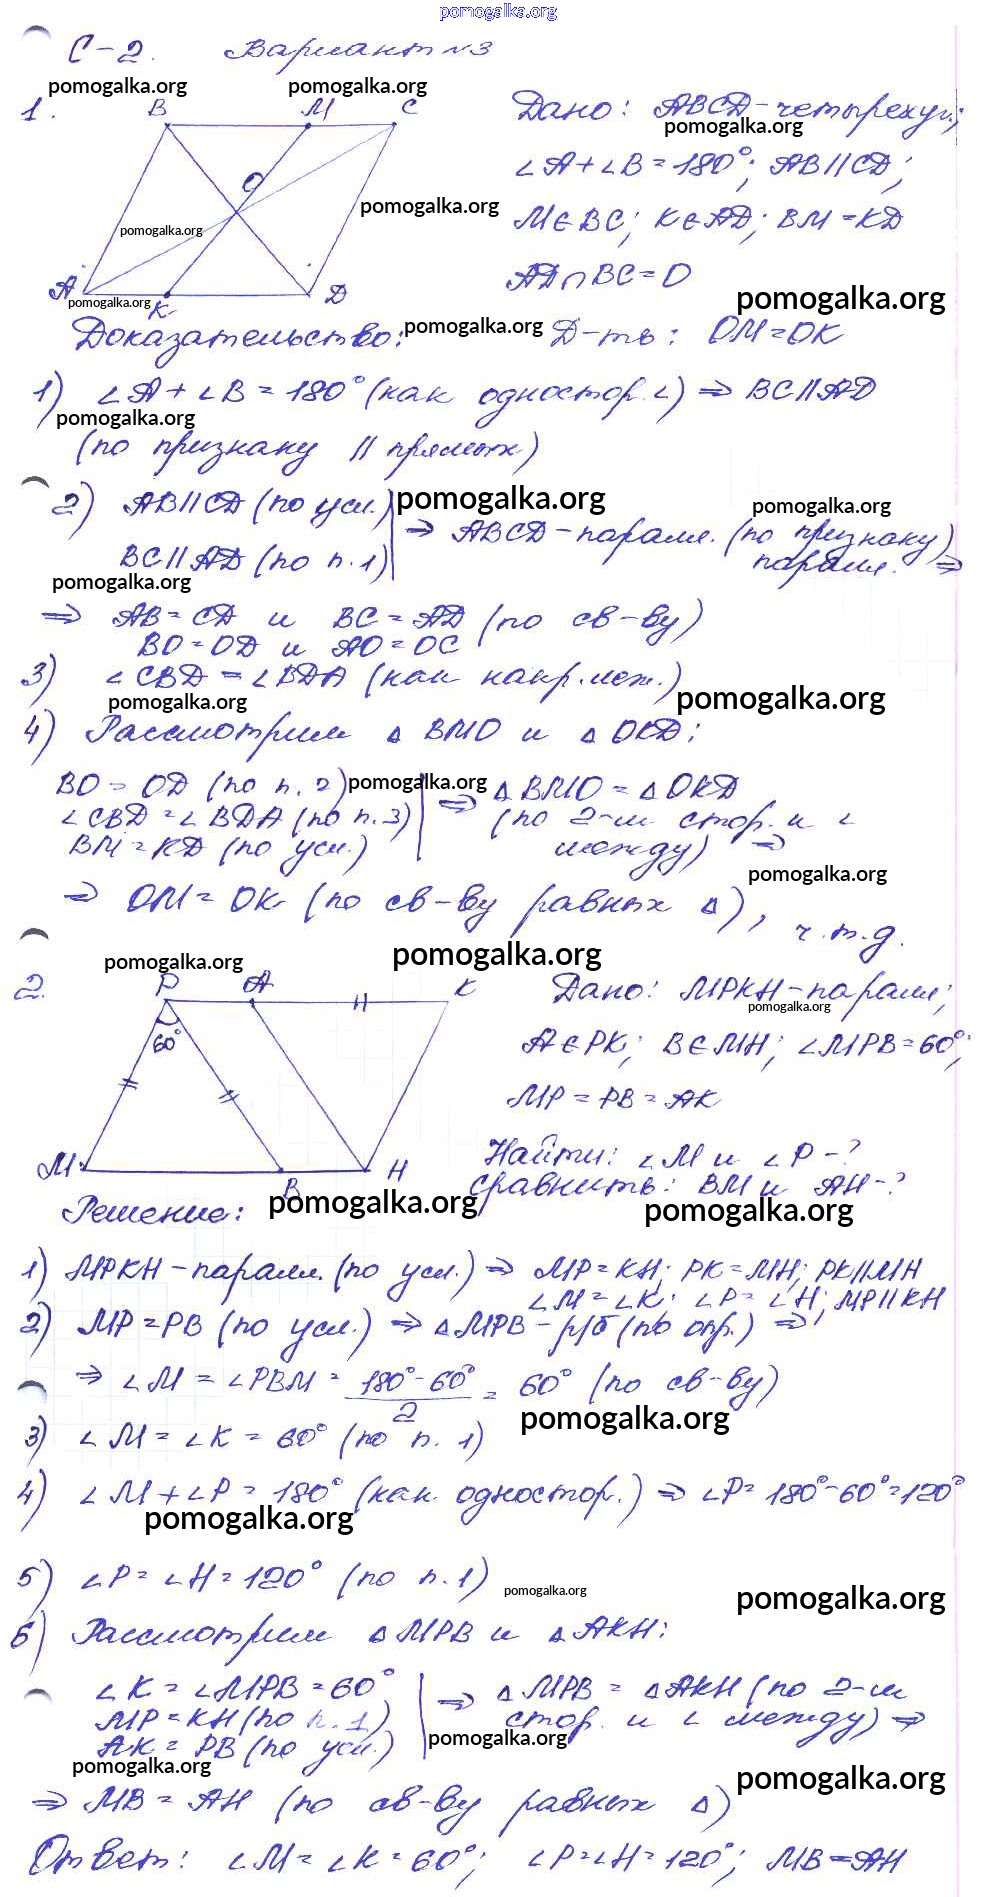 pomogalka.org
С-2. Вариант №3
pomogalka.org pomogalka.org
1. B M C Дано: ABCD-четырехуг.;
pomogalka.org
∠A+∠B=180°; AB∥CD;
O
pomogalka.org
M∈BC; K∈AD; BM=KD
pomogalka.org
AD∩BC=O
A K D
pomogalka.org
pomogalka.org
Доказательство: pomogalka.org Д-ть: OM=OK
1) ∠A+∠B=180° (как одностор.∠) ⇒ BC∥AD
pomogalka.org
(по признаку ∥ прямых)
2) AB∥CD (по усл.) pomogalka.org pomogalka.org
⇒ ABCD-паралл. (по признаку)
BC∥AD (по п.1) паралл. ⇒
pomogalka.org
⇒ AB=CD и BC=AD (по св-ву)
BO=OD и AO=OC
3) ∠CBD=∠BDA (как накр.леж.)
pomogalka.org pomogalka.org
4) Рассмотрим △BMO и △OKD:
BO=OD (по п.2) pomogalka.org ⇒ △BMO=△OKD
∠CBD=∠BDA (по п.3) (по 2-м стор. и ∠
BM=KD (по усл.) между) ⇒
pomogalka.org
⇒ OM=OK (по св-ву равных △),
ч.т.д.
pomogalka.org pomogalka.org
2. P A H K Дано: MPKH-паралл;
pomogalka.org
60° A∈PK; B∈MH; ∠MPB=60°;
MP=PB=AK
Найти: ∠M и ∠P-?
M B H сравнить: BM и AH-?
pomogalka.org pomogalka.org
Решение:
1) MPKH-паралл. (по усл.) ⇒ MP=KH; PK=MH; PK∥MH
∠M=∠K; ∠P=∠H; MP∥KH
2) MP=PB (по усл.) ⇒ △MPB-р/б (по опр.) ⇒
⇒ ∠M=∠PBM=180°-60°/2=60° (по св-ву)
pomogalka.org
3) ∠M=∠K=60° (по п.1)
4) ∠M+∠P=180° (как одностор.) ⇒ ∠P=180°-60°=120°
pomogalka.org
5) ∠P=∠H=120° (по п.1) pomogalka.org
pomogalka.org
6) Рассмотрим △MPB и △AKH:
∠K=∠MPB=60° ⇒ △MPB=△AKH (по 2-м
MP=KH (по п.1) стор. и ∠ между) ⇒
AK=PB (по усл.) pomogalka.org
pomogalka.org pomogalka.org
⇒ MB=AH (по св-ву равных △)
Ответ: ∠M=∠K=60°; ∠P=∠H=120°; MB=AH